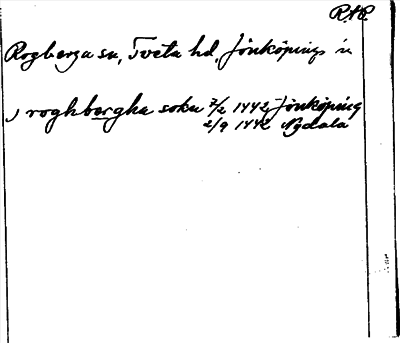 R.A.P.
Rogberga sn, Tveta hd, Jönköpings ln
, roghbergha sokn 7/2 1442, Jönköping
2/9 1442 Nydala